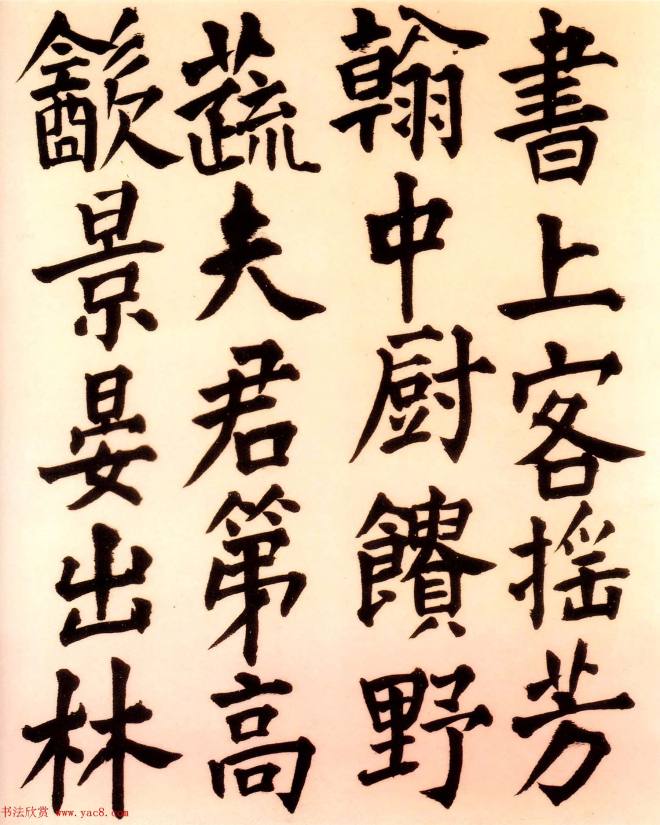 書上客摇芳
翰中厨饋野
蔬夫君第高
㱃景晏出林
书法欣赏 www.yac8.com